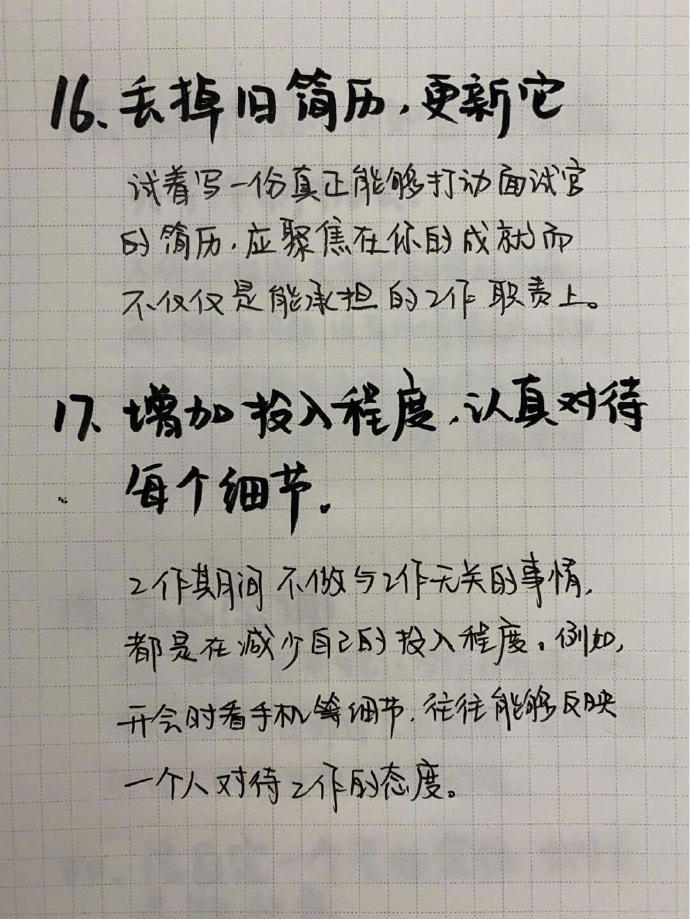 16、丢掉旧简历，更新它
试着写一份真正能够打动面试官
的简历，应聚焦在你的成就而
不仅仅是能承担的工作职责上。
17、增加投入程度，认真对待
每个细节。
工作期间不做与工作无关的事情，
都是在减少自己的投入程度。例如，
开会时看手机等细节，往往能够反映
一个人对待工作的态度。